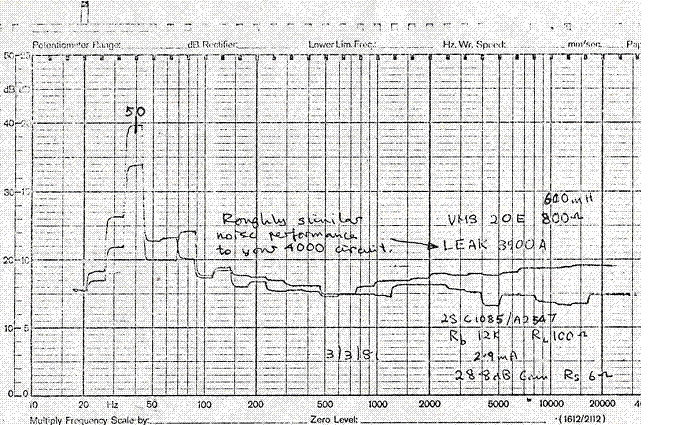 Potentiometer Range: dB Rectifier: Lower Lim. Freq.: Hz. Wr. Speed: mm/sec. Pap
50
dB
50
40
600mH
30
Roughly similar VMS 20E 800Ω
noise performance
to your 4000 circuit. LEAK 3900A
20-10
2SC1085/A2547
10-5
Rb 12K RL 100Ω
3/3/81 2.9mA
28.8dB Gain Rs 6Ω
0-0
10 20 Hz 50 100 200 500 1000 2000 5000 10000 20000 40
Multiply Frequency Scale by: Zero Level: (1612/2112)